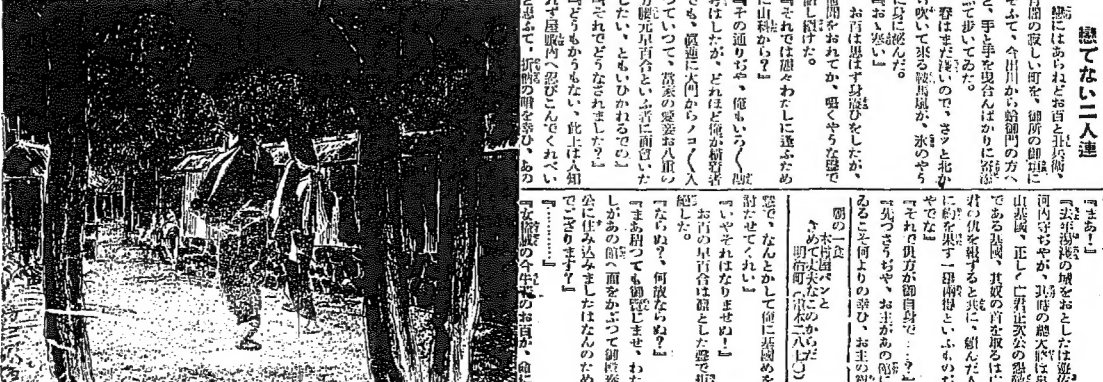 戀でない二人連
戀にはあらねどお百と丑兵衛、
月間の寂しい町を、御所の御垣に
そふて、今出川から蛤御門の方へ
と、手と手を曳合んばかりに寄添
ふて歩いてゐた。
春はまだ淺いので、さッと北か
ら吹いて來る鞍馬嵐が、氷のやう
に身に泌んだ。
『おゝ寒い』
お百は思はず身顫ひをしたが、
世間をおれてか、囁くやうな聲で
話し續けた。
『それでは態々わたしに逢ふため
に山科から？』
『その通りぢや、俺もいろ〱勘
考はしたが、どれほど俺が横着者
でも、眞逆に大門からノコ〱入
つていつて、當家の愛妾お八重の
方腰元星百合といふ者に面會いた
したい、ともいひかねるでの』
『それでどうなされました？』
『どうもかうもない、此上は人知
れず屋敷内へ忍びこんでくれべい
と思ふて、折柄の闇を幸ひ、あの
『まあ！』
『去年湯淺の城をおとしたは遊佐
河内守ぢやが、其時の總大將は畠
山基國、正しく亡君正次公の怨敵
である基國、其奴の首を取るは亡
君の仇を報ずると共に、頼んだ人
に約を果す一擧兩得といふものぢ
やでな』
『それで貴方が御自身で…？』
『先づさうぢや、お主があの館に
ゐるこそ何よりの幸ひ、お主の智
朝の一食
木村屋パンと
きめて丈夫にのからだ
明治町（電本一八七〇）
慧で、なんとかして俺に基國めを
討たせてくれい』
『いやそれはなりませぬ！』
お百の星百合は凛とした聲で拒
絶した。
『ならぬ？、何故ならぬ？』
『まあ積つても御覽じませ、わた
しがあの館へ面をかぶつて御殿奉
公に住み込みましたはなんのため
でござります？』
『…………』
『女怪賊の今牛若のお百が、命に